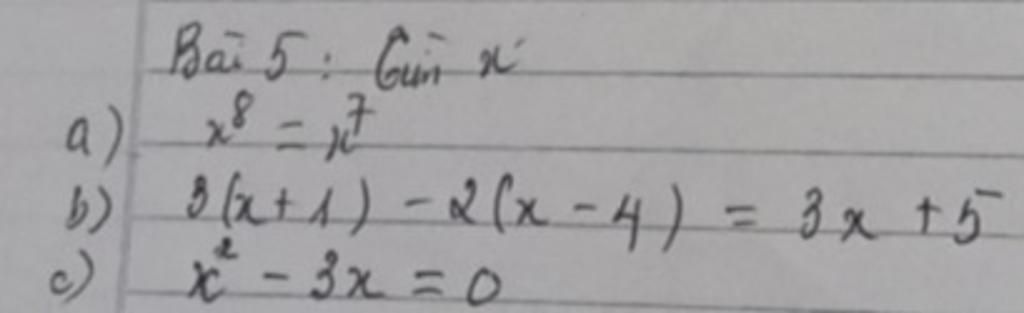 Bài 5: Tìm x
a) x⁸ = x⁷
b) 3(x+1) - 2(x-4) = 3x + 5
c) x² - 3x = 0